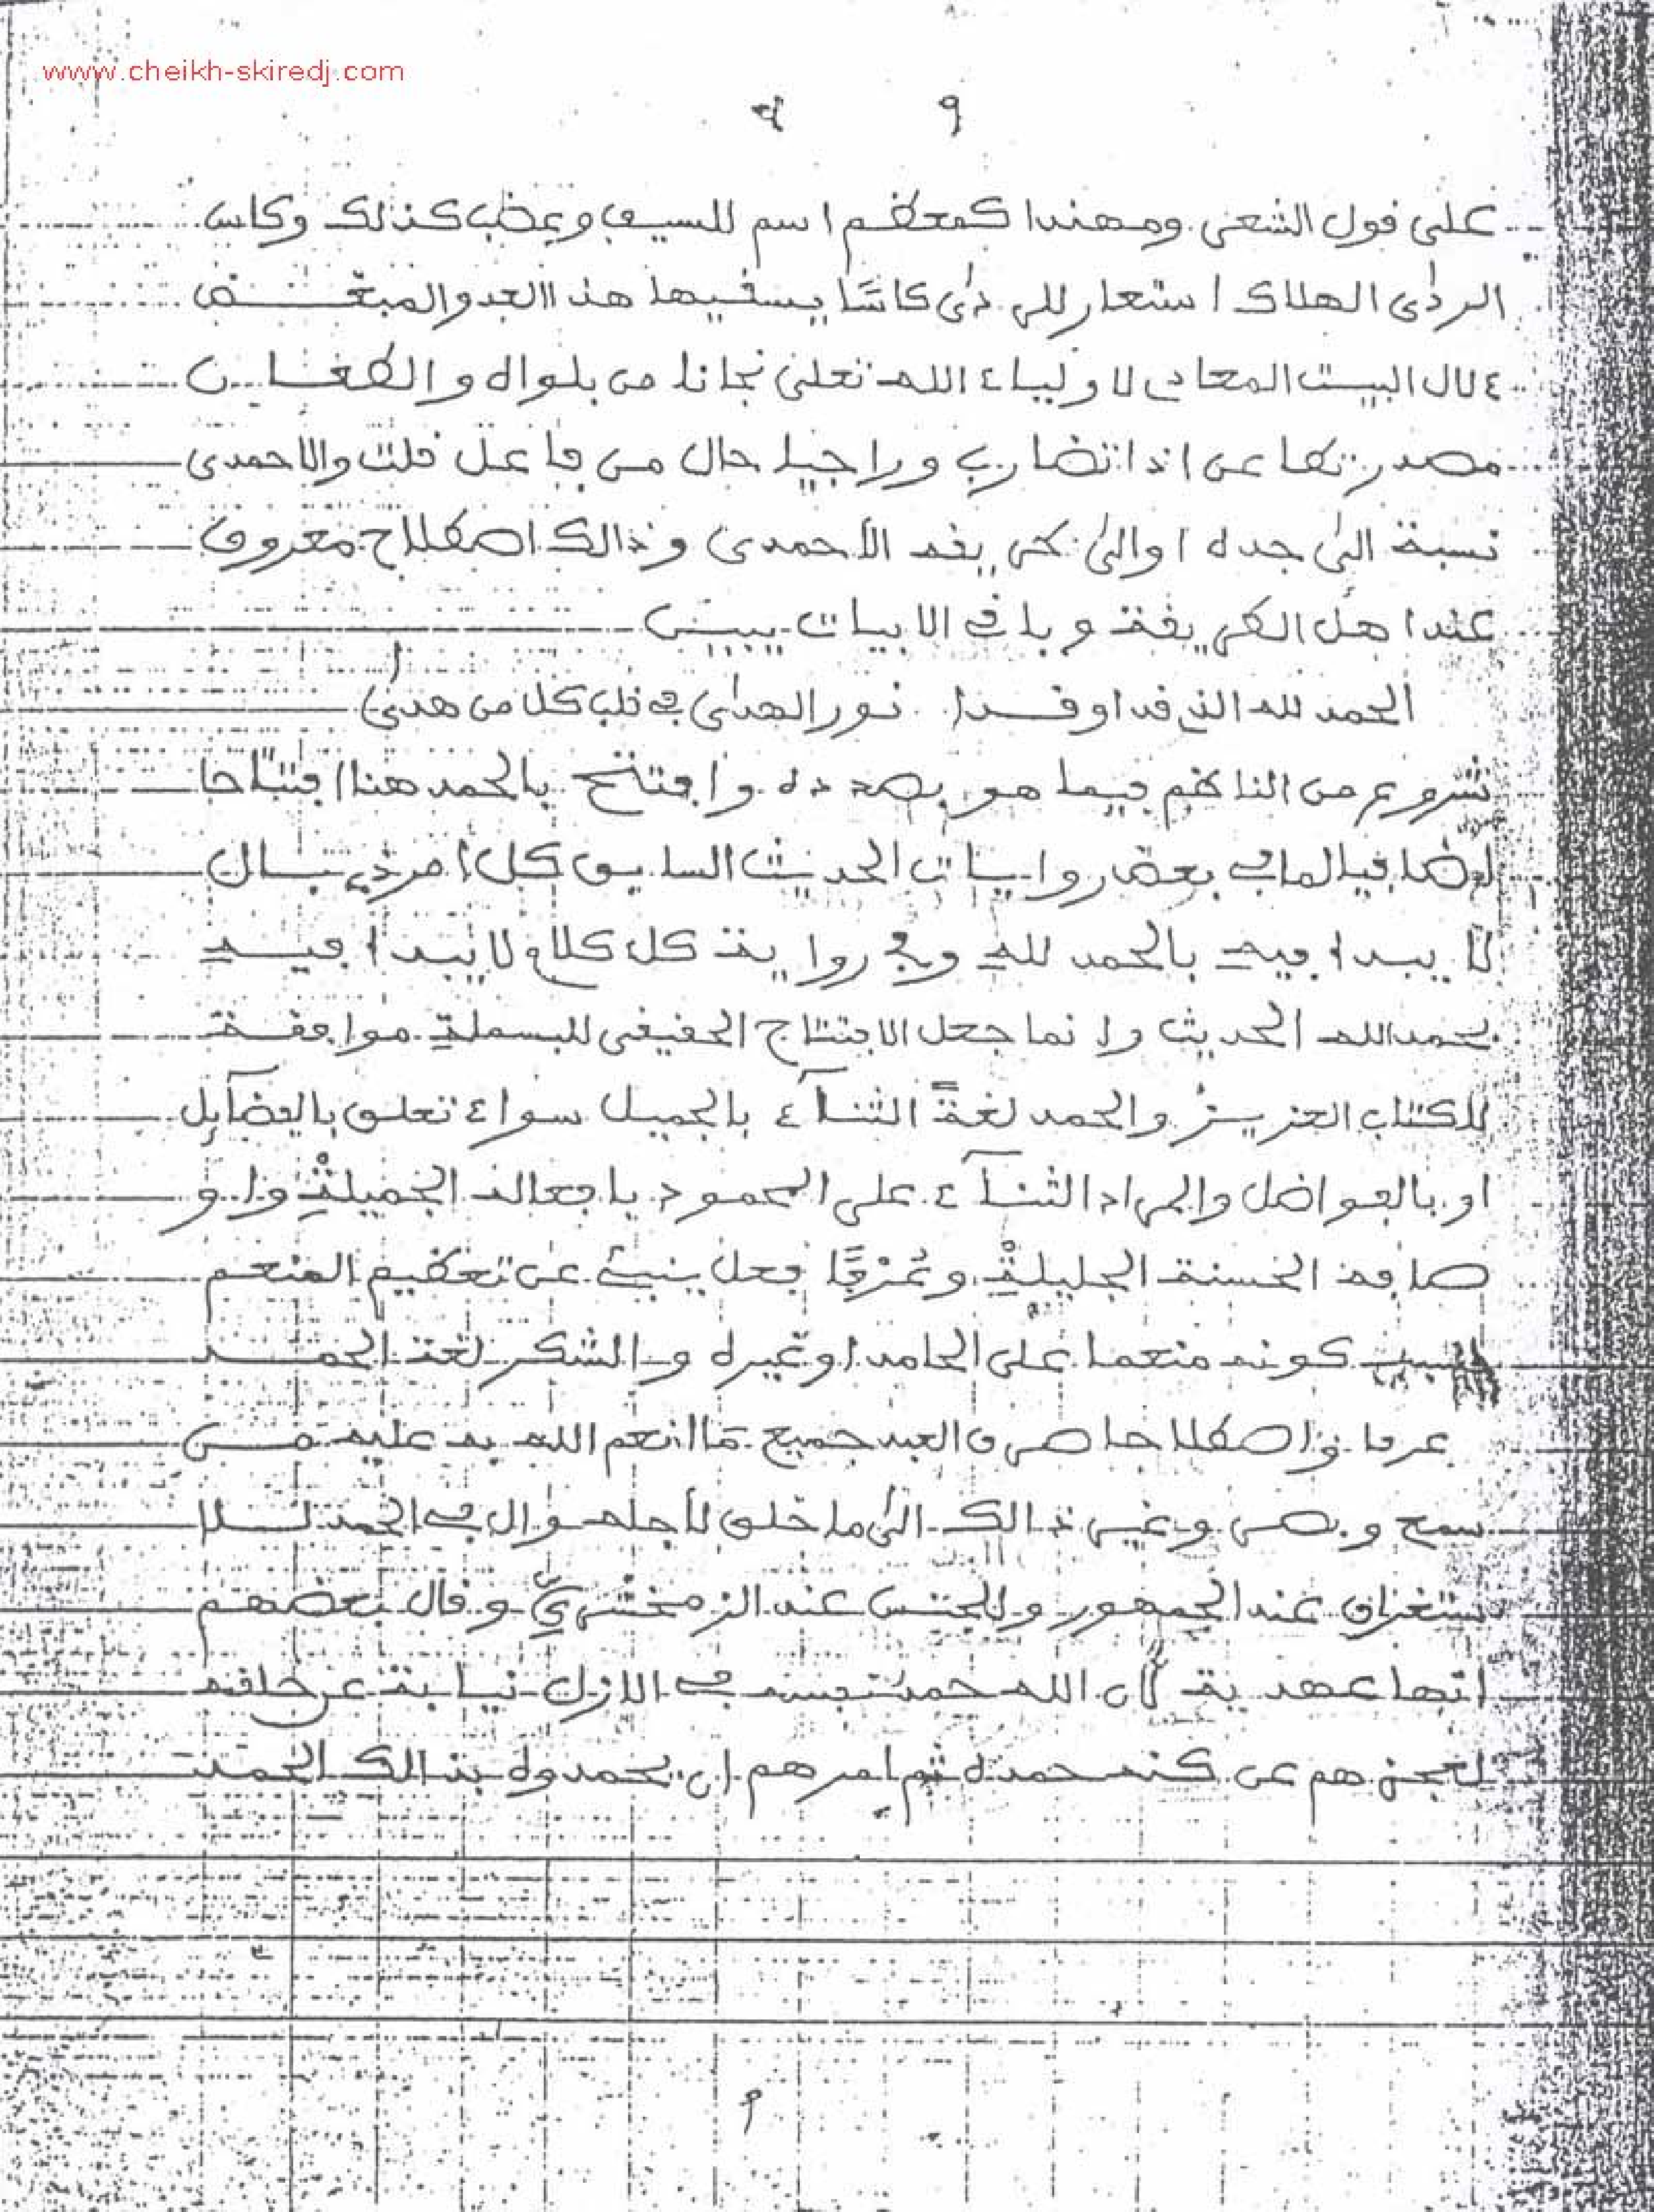 www.cheikh-skiredj.com
٩
على قول الشعر ومهندا كمعظم اسم للسيف وعضب كذلك وكاس
الردى الهلاك استعار للردى كاسًا يسقيها هذا العدو المبغض
ءلال البيت المعادى لاولياء الله تعلى نجانا من بلواه والطعان
مصدر تطاعن اذا تضارب وراجيا حال من فاعل قلت والاحمدى
نسبة الى جده اوالى طريقه الأحمدى وذالك اصطلاح معروف
عند اهل الطريقة وباقى الابيات بين
الحمد لله الذى قد اوقدا نور الهدى في قلب كل من هدى
شروع من الناظم فيما هو بصدده وافتتح بالحمد هنا افتتاحا
اضافيا لما في بعض روايات الحديث السابق كل أمر ذى بال
لا يبدا فيه بالحمد لله وفي رواية كل كلام لا يبدا فيه
بحمد الله الحديث وانما جعل الافتتاح الحقيقى للبسملة موافقة
للكتاب العزيز والحمد لغةً الثنآء بالجميل سواء تعلق بالفضآيل
او بالفواضل والمراد الثنآء على المحمود بافعاله الجميلة واو
صافه الحسنة الجليلة وعُرْفًا فعل ينبئ عن تعظيم المنعم
بسبب كونه منعما على الحامد اوغيره والشكر لغة الحمد
عرفا واصطلاحا صرف العبد جميع ما انعم الله به عليه من
سمع وبصر وغير ذالك الى ما خلق لأجله وال في الحمد للا
ستغراق عند الجمهور وللجنس عند الزمخشريّ وقال بعضهم
انها عهدية لأن الله حمد نفسه في الازل نيابة عن خلقه
لعجزهم عن كنه حمده ثم امرهم ان يحمدوه بذالك الحمد